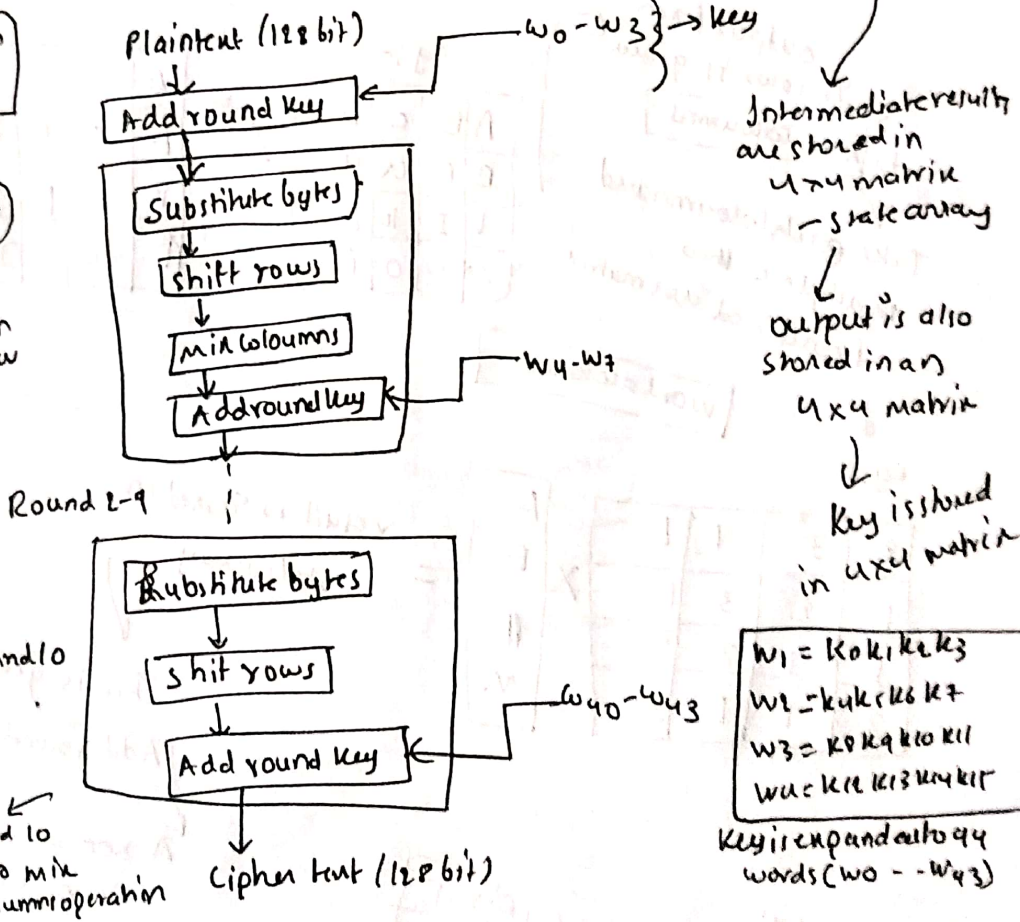 Plaintext (128 bit)
w0-w3 } → key
Add round key
Substitute bytes
shift rows
mix coloumns
Add round key
w4-w7
Round 2-9
Substitute bytes
shit rows
Add round key
w40-w43
Cipher text (128 bit)
nd10
d 10
o mix
umns operation
Intermediate results
are stored in
4x4 matrix
- state array
output is also
stored in an
4x4 matrix
Key is stored
in 4x4 matrix
W1 = K0K1K2K3
W2 = K4K5K6K7
W3 = K8K9K10K11
W4 = K12K13K14K15
Key is expanded to 44
words (w0 - - w43)